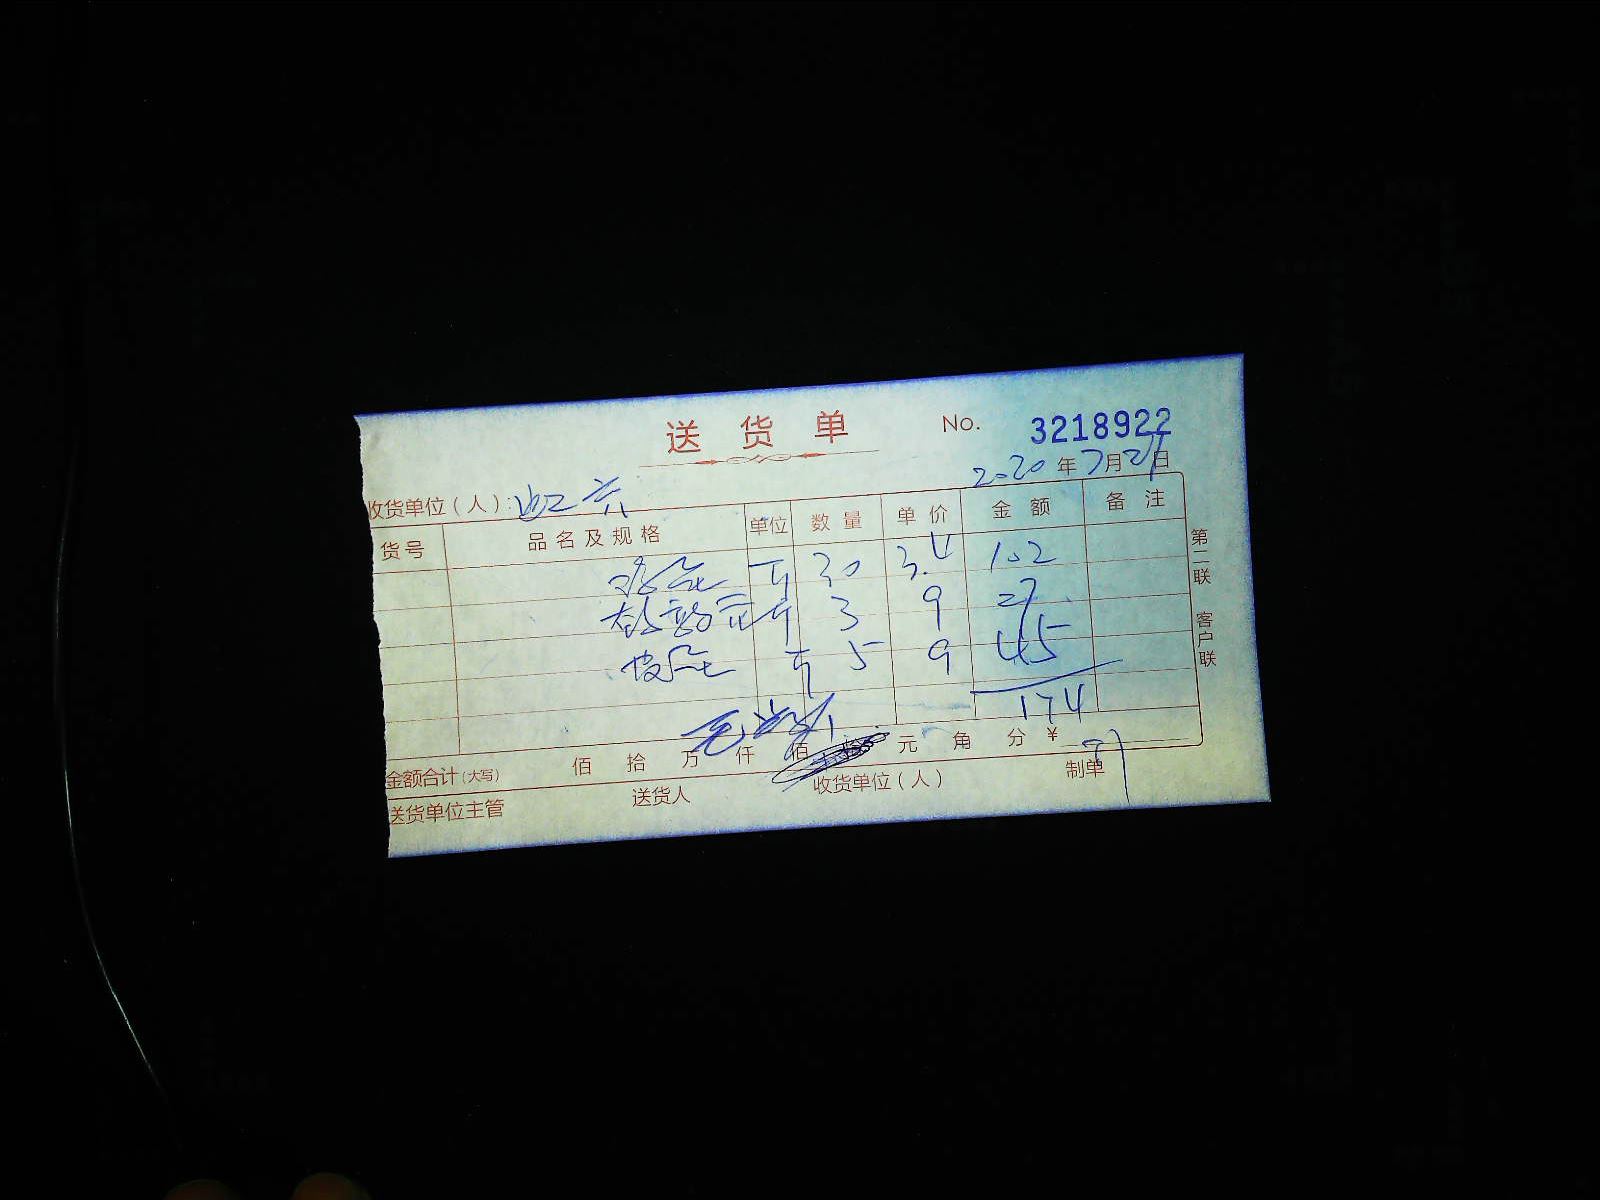 送货单 No. 3218922
2020年7月21日
收货单位(人):
货号 品名及规格 单位 数量 单价 金额 备注
斤 30 3.4 102
斤 3 9 27
斤 5 9 45
174
金额合计(大写) 佰 拾 万 仟 佰 拾 元 角 分 ¥
送货单位主管 送货人 收货单位(人) 制单
第二联 客户联